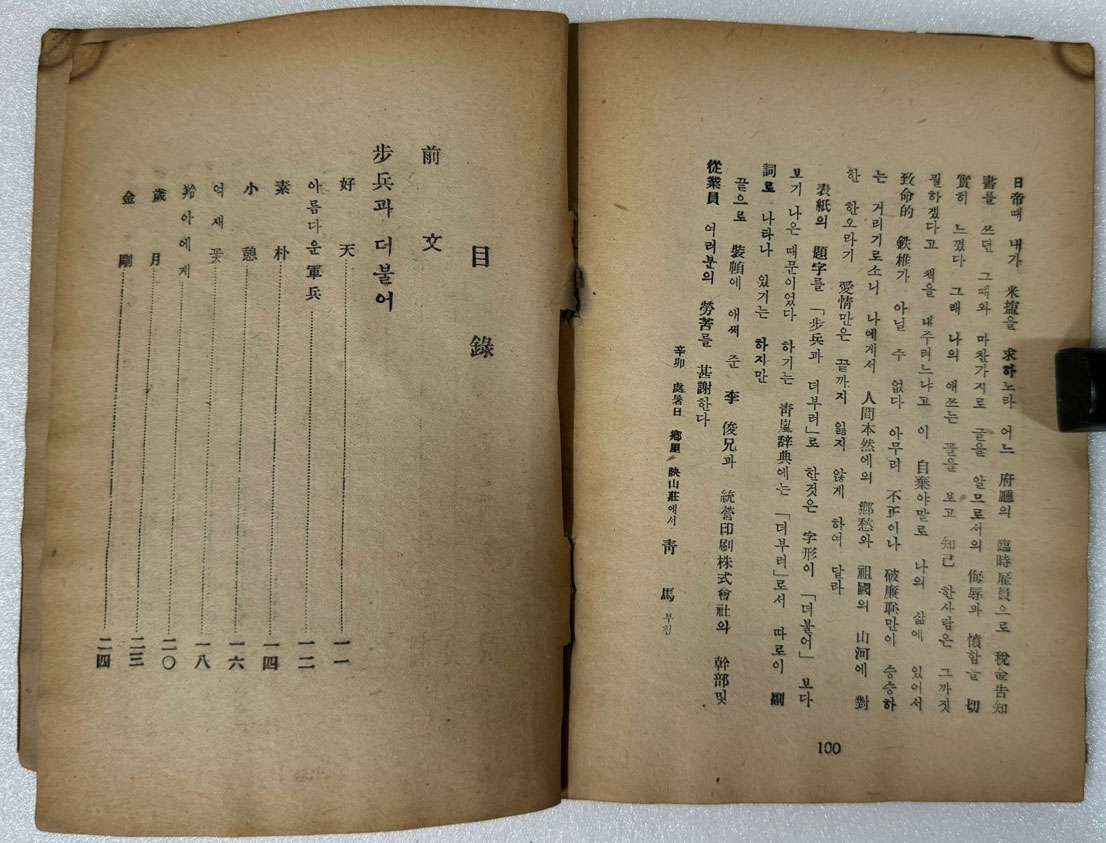 日帝때 내가 米塩을 求하노라 어느 府廳의 臨時雇員으로 稅金告知
書를 쓰던 그때와 마찬가지로 글을 앎므로서의 侮辱과 憤함을 切
實히 느꼈다 그래 나의 애쓰는 꼴을 보고 知己 한사람은 그까짓
필하겠다고 책을 내주려느냐고 이 自棄야말로 나의 삶에 있어서
致命的 鉄椎가 아닐 수 없다 아무리 不正이나 破廉恥만이 승승하
는 거리기로소니 나에게서 人間本然에의 鄕愁와 祖國의 山河에 對
한 한오라기 愛情만은 끝까지 잃지 않게 하여 달라
表紙의 題字를「步兵과 더부러」로 한것은 字形이「더불어」보다
보기 나은 때문이었다 하기는 靑嵐辞典에는「더부러」로서 따로이 副
詞로 나타나 있기는 하지만
끝으로 裝幀에 애쩌 준 李 俊兄과 統營印刷株式會社의 幹部및
從業員 여러분의 勞苦를 甚謝한다
辛卯 處暑日 鄕里 映山莊에서 靑馬 부침
100
目錄
前文
步兵과 더불어
好天 一一
아름다운 軍兵 一二
素朴 一四
小憩 一六
억새꽃 一八
羚아에게 二〇
歲月 二三
金剛 二四